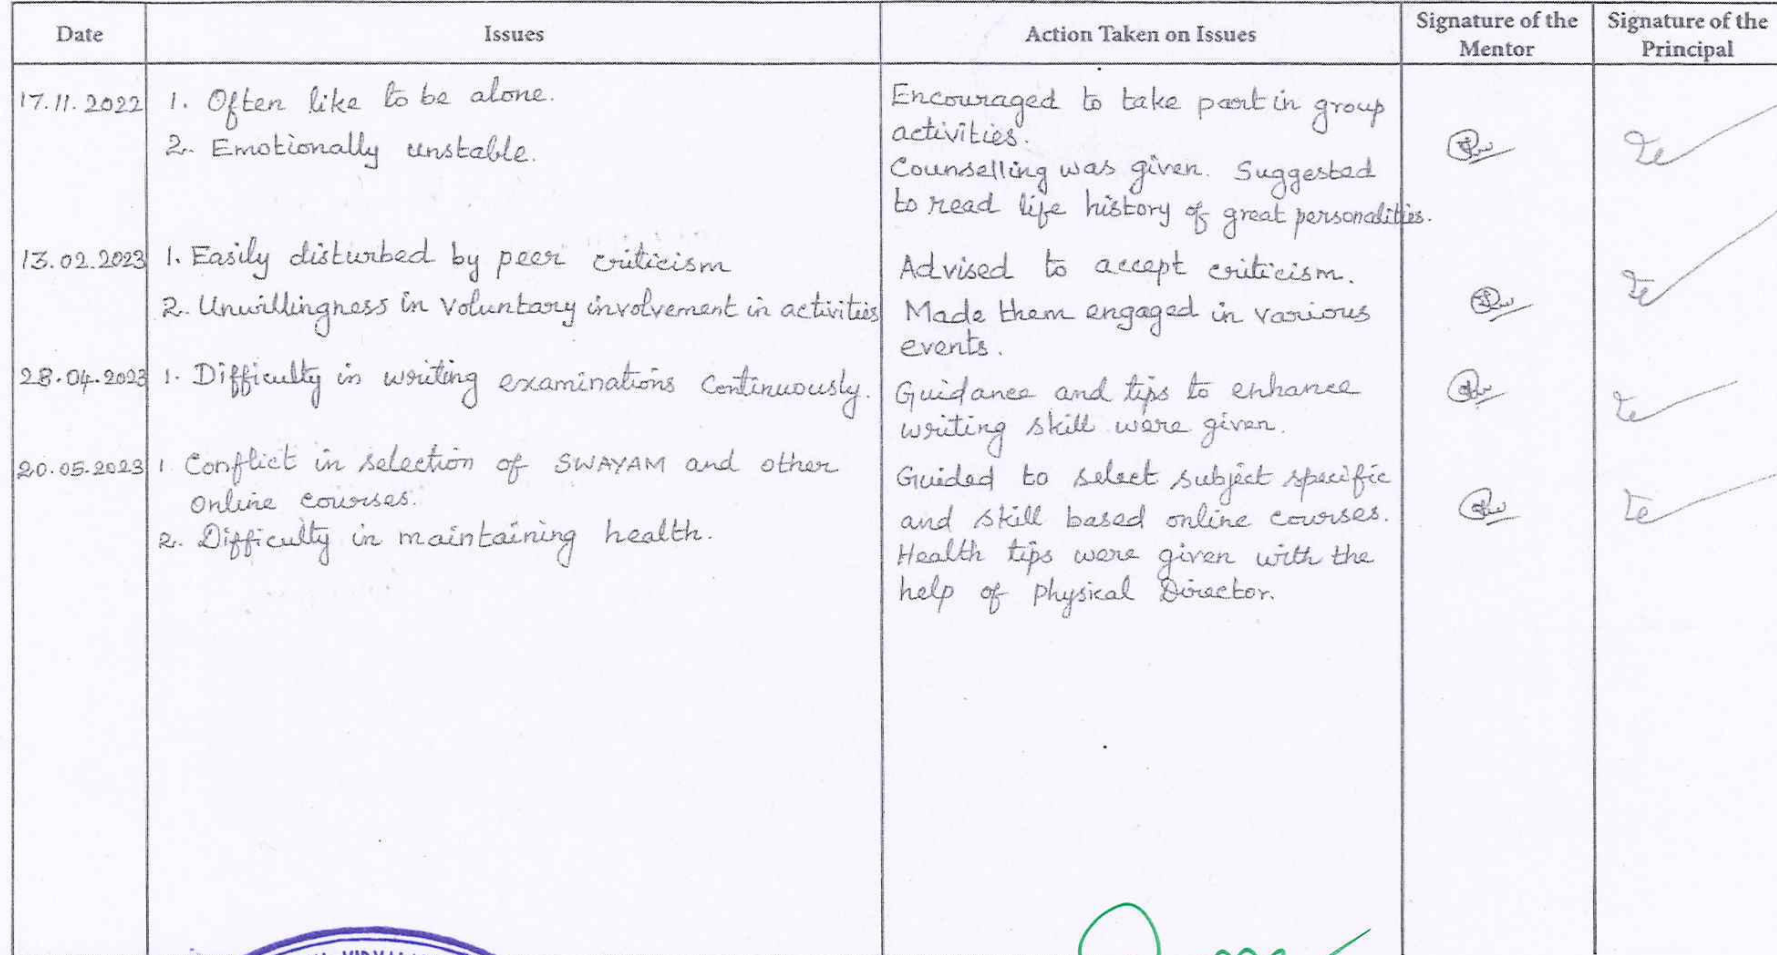 Date Issues Action Taken on Issues Signature of the Mentor Signature of the Principal
17.11.2022 1. Often like to be alone.
2. Emotionally unstable.
Encouraged to take part in group
activities.
Counselling was given. Suggested
to read life history of great personalities.
13.02.2023 1. Easily disturbed by peer criticism
2. Unwillingness in voluntary involvement in activities
Advised to accept criticism.
Made them engaged in various
events.
28.04.2023 1. Difficulty in writing examinations continuously.
Guidance and tips to enhance
writing skill were given.
20.05.2023 1. Conflict in selection of SWAYAM and other
online courses.
2. Difficulty in maintaining health.
Guided to select subject specific
and skill based online courses.
Health tips were given with the
help of physical Director.